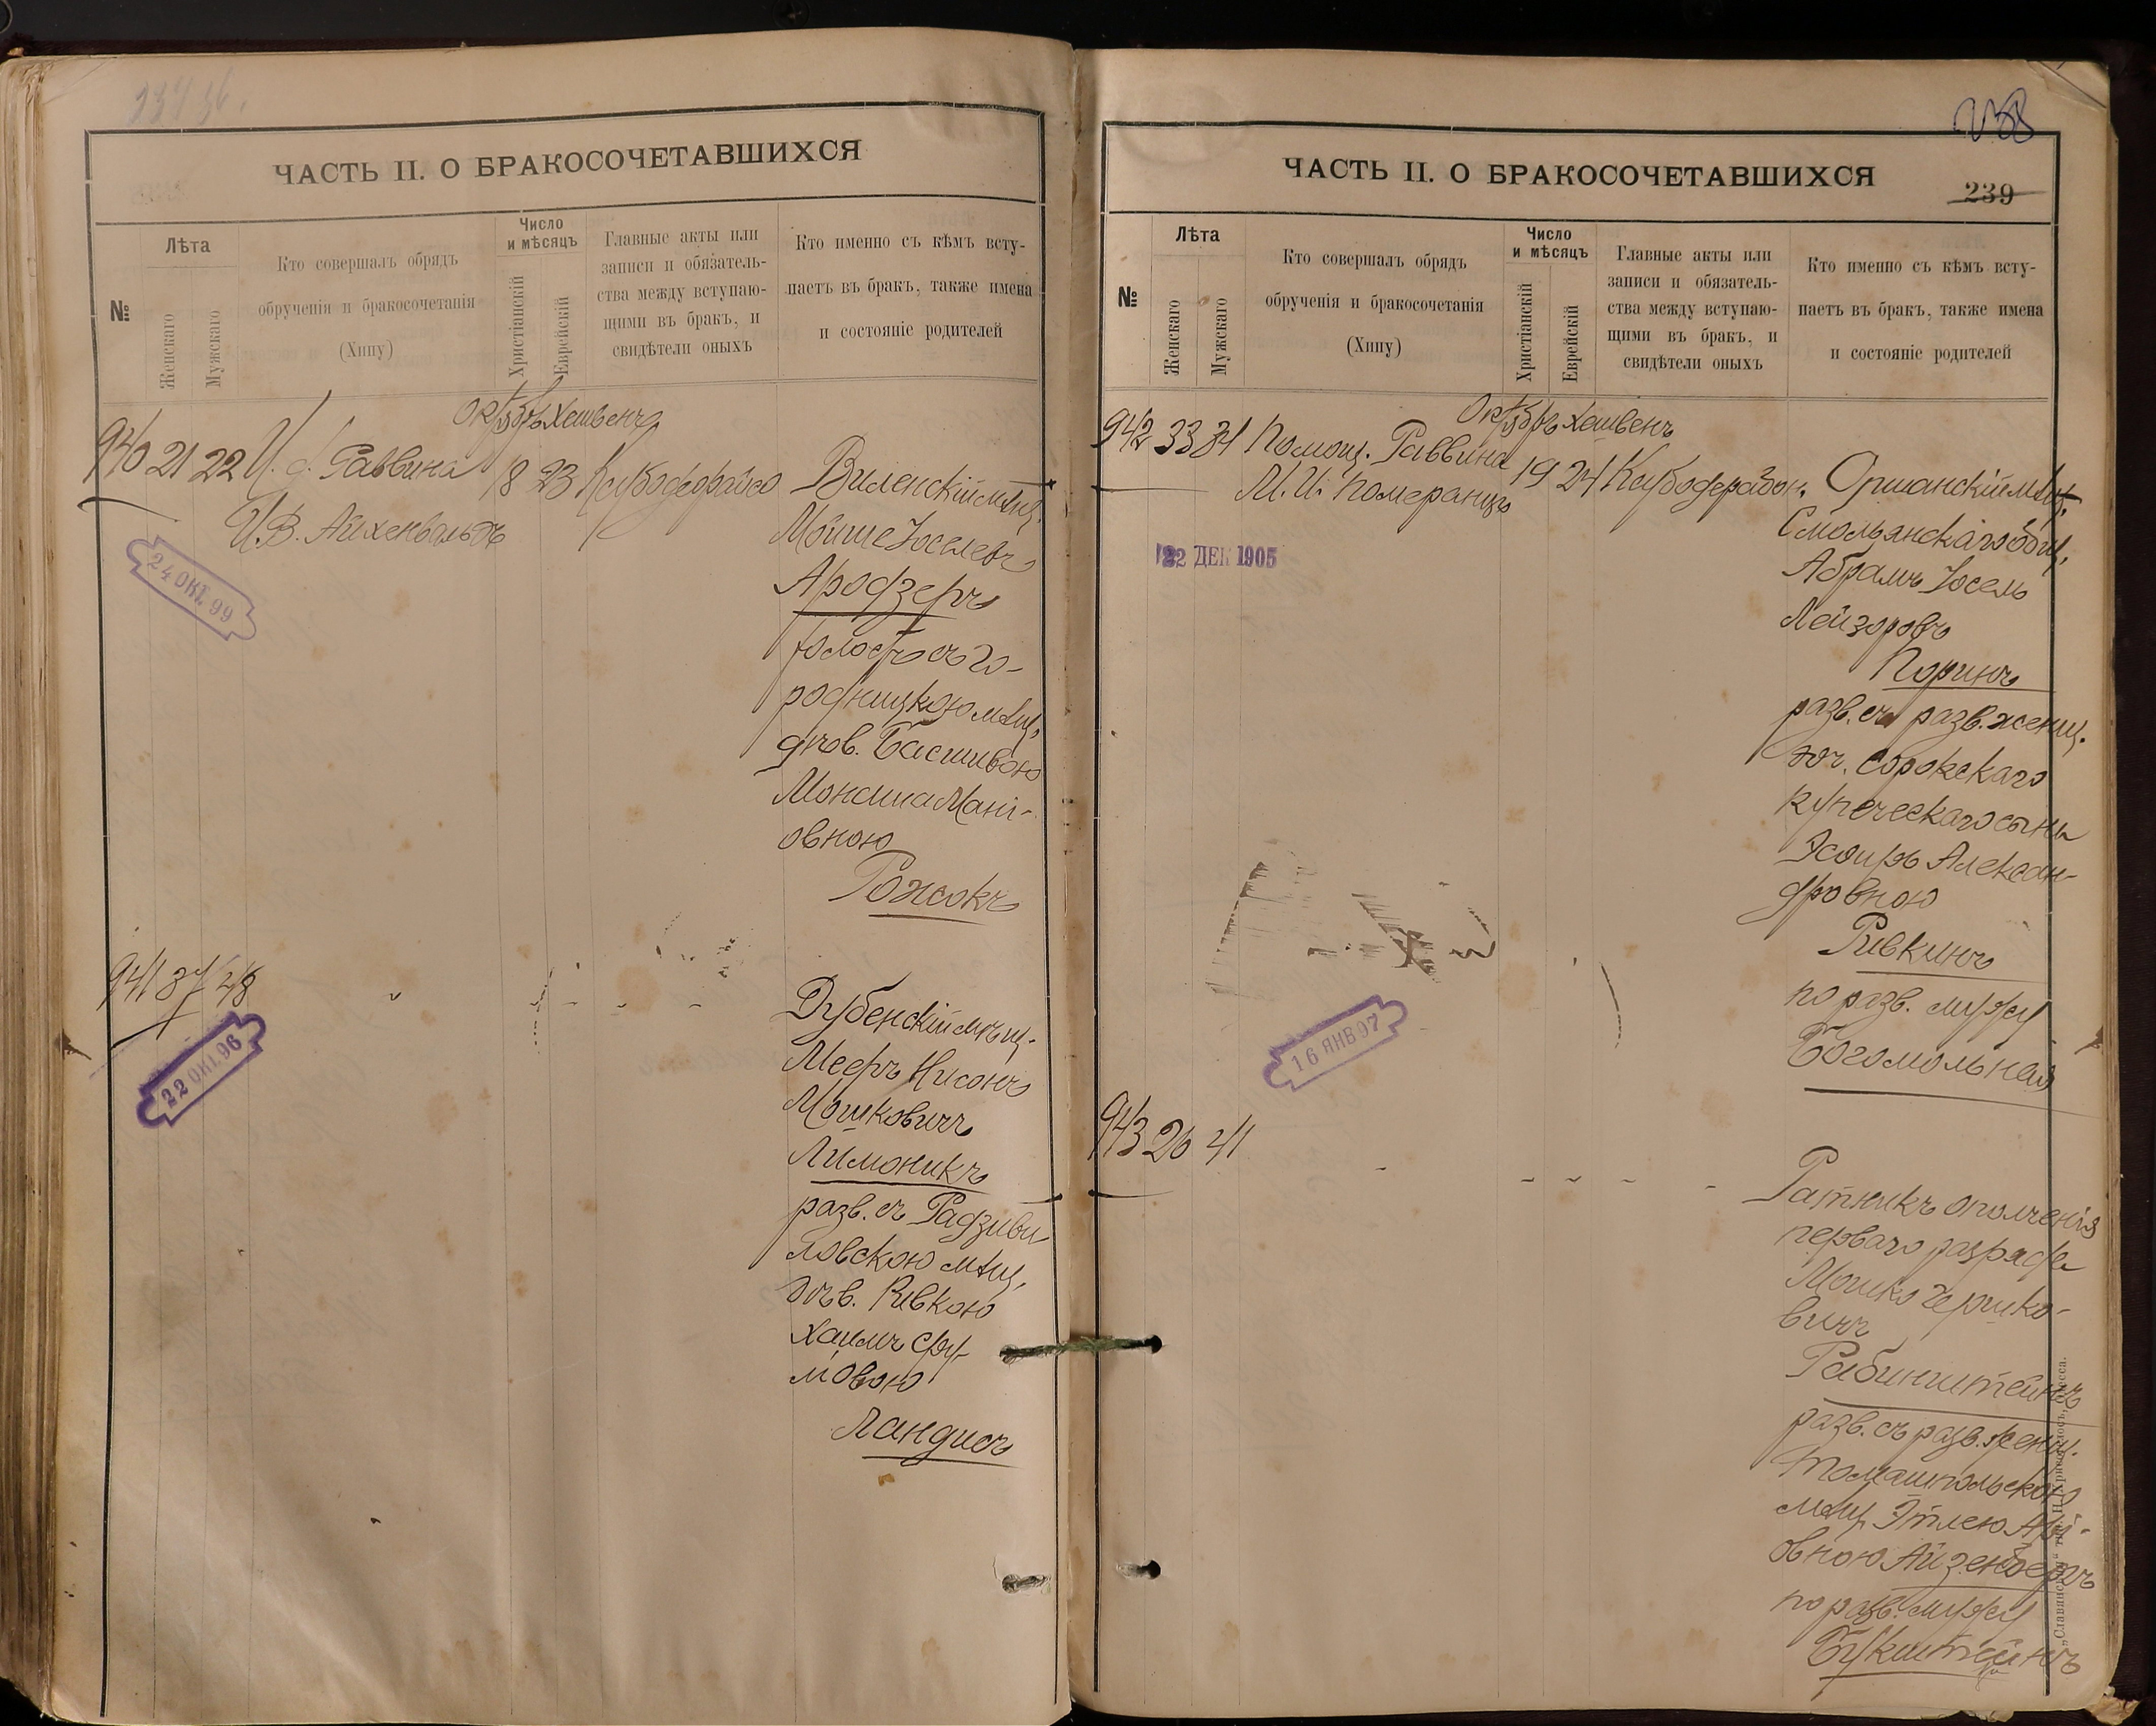 ЧАСТЬ II. О БРАКОСОЧЕТАВШИХСЯ
№
Лѣта
Женскаго
Мужскаго
Кто совершалъ обрядъ
обрученія и бракосочетанія
(Хипу)
Число
и мѣсяцъ
Христіанскій
Еврейскій
Главные акты или
записи и обязатель-
ства между вступаю-
щими въ бракъ, и
свидѣтели оныхъ
Кто именно съ кѣмъ всту-
паетъ въ бракъ, также имена
и состояніе родителей
Октябрь Хешвенъ
940 21 22 И. д. Раввина 18 23
И.В. Айхенвальдъ
24 ОКТ. 99
Виленскій мѣщ.
Мойше Іоселевъ
Ародзеръ
холостъ съ го-
родницкою мѣщ.
дѣв. Басшивою
Монаша Мані-
овною
Рожокъ
941 37 48
22 ОКТ. 96
Дубенскій мѣщ.
Мееръ Нисонъ
Мошковичъ
Лимоникъ
разв. съ Радзиви
ловскою мѣщ.
дѣв. Ривкою
Хаимъ Сру
мовою
Ландисъ
238
ЧАСТЬ II. О БРАКОСОЧЕТАВШИХСЯ
239
№
Лѣта
Женскаго
Мужскаго
Кто совершалъ обрядъ
обрученія и бракосочетанія
(Хипу)
Число
и мѣсяцъ
Христіанскій
Еврейскій
Главные акты или
записи и обязатель-
ства между вступаю-
щими въ бракъ, и
свидѣтели оныхъ
Кто именно съ кѣмъ всту-
паетъ въ бракъ, также имена
и состояніе родителей
Октябрь Хешвенъ
942 33 34 Помощ. Раввина 19 24
М. И. Померанцъ
22 ДЕК 1905
Оршанскій мѣщ.
Смольянскаго общ.
Абрамъ Іосель
Лейзоровъ
Поринъ
разв. съ разв. женщ.
доч. Сорокскаго
купеческаго сына
Эсѳирь Алексан-
дровною
Ривкинъ
по разв. мужу
Богомольная
16 ЯНВ 97
943 26 41
Ратникъ ополченія
перваго разряда
Мошко Гершко-
вичъ
Рабинштейнъ
разв. съ разв. женщ.
Томашпольскою
мѣщ. Этлею Арі-
овною Айзенбергъ
по разв. мужу
Букштейнъ